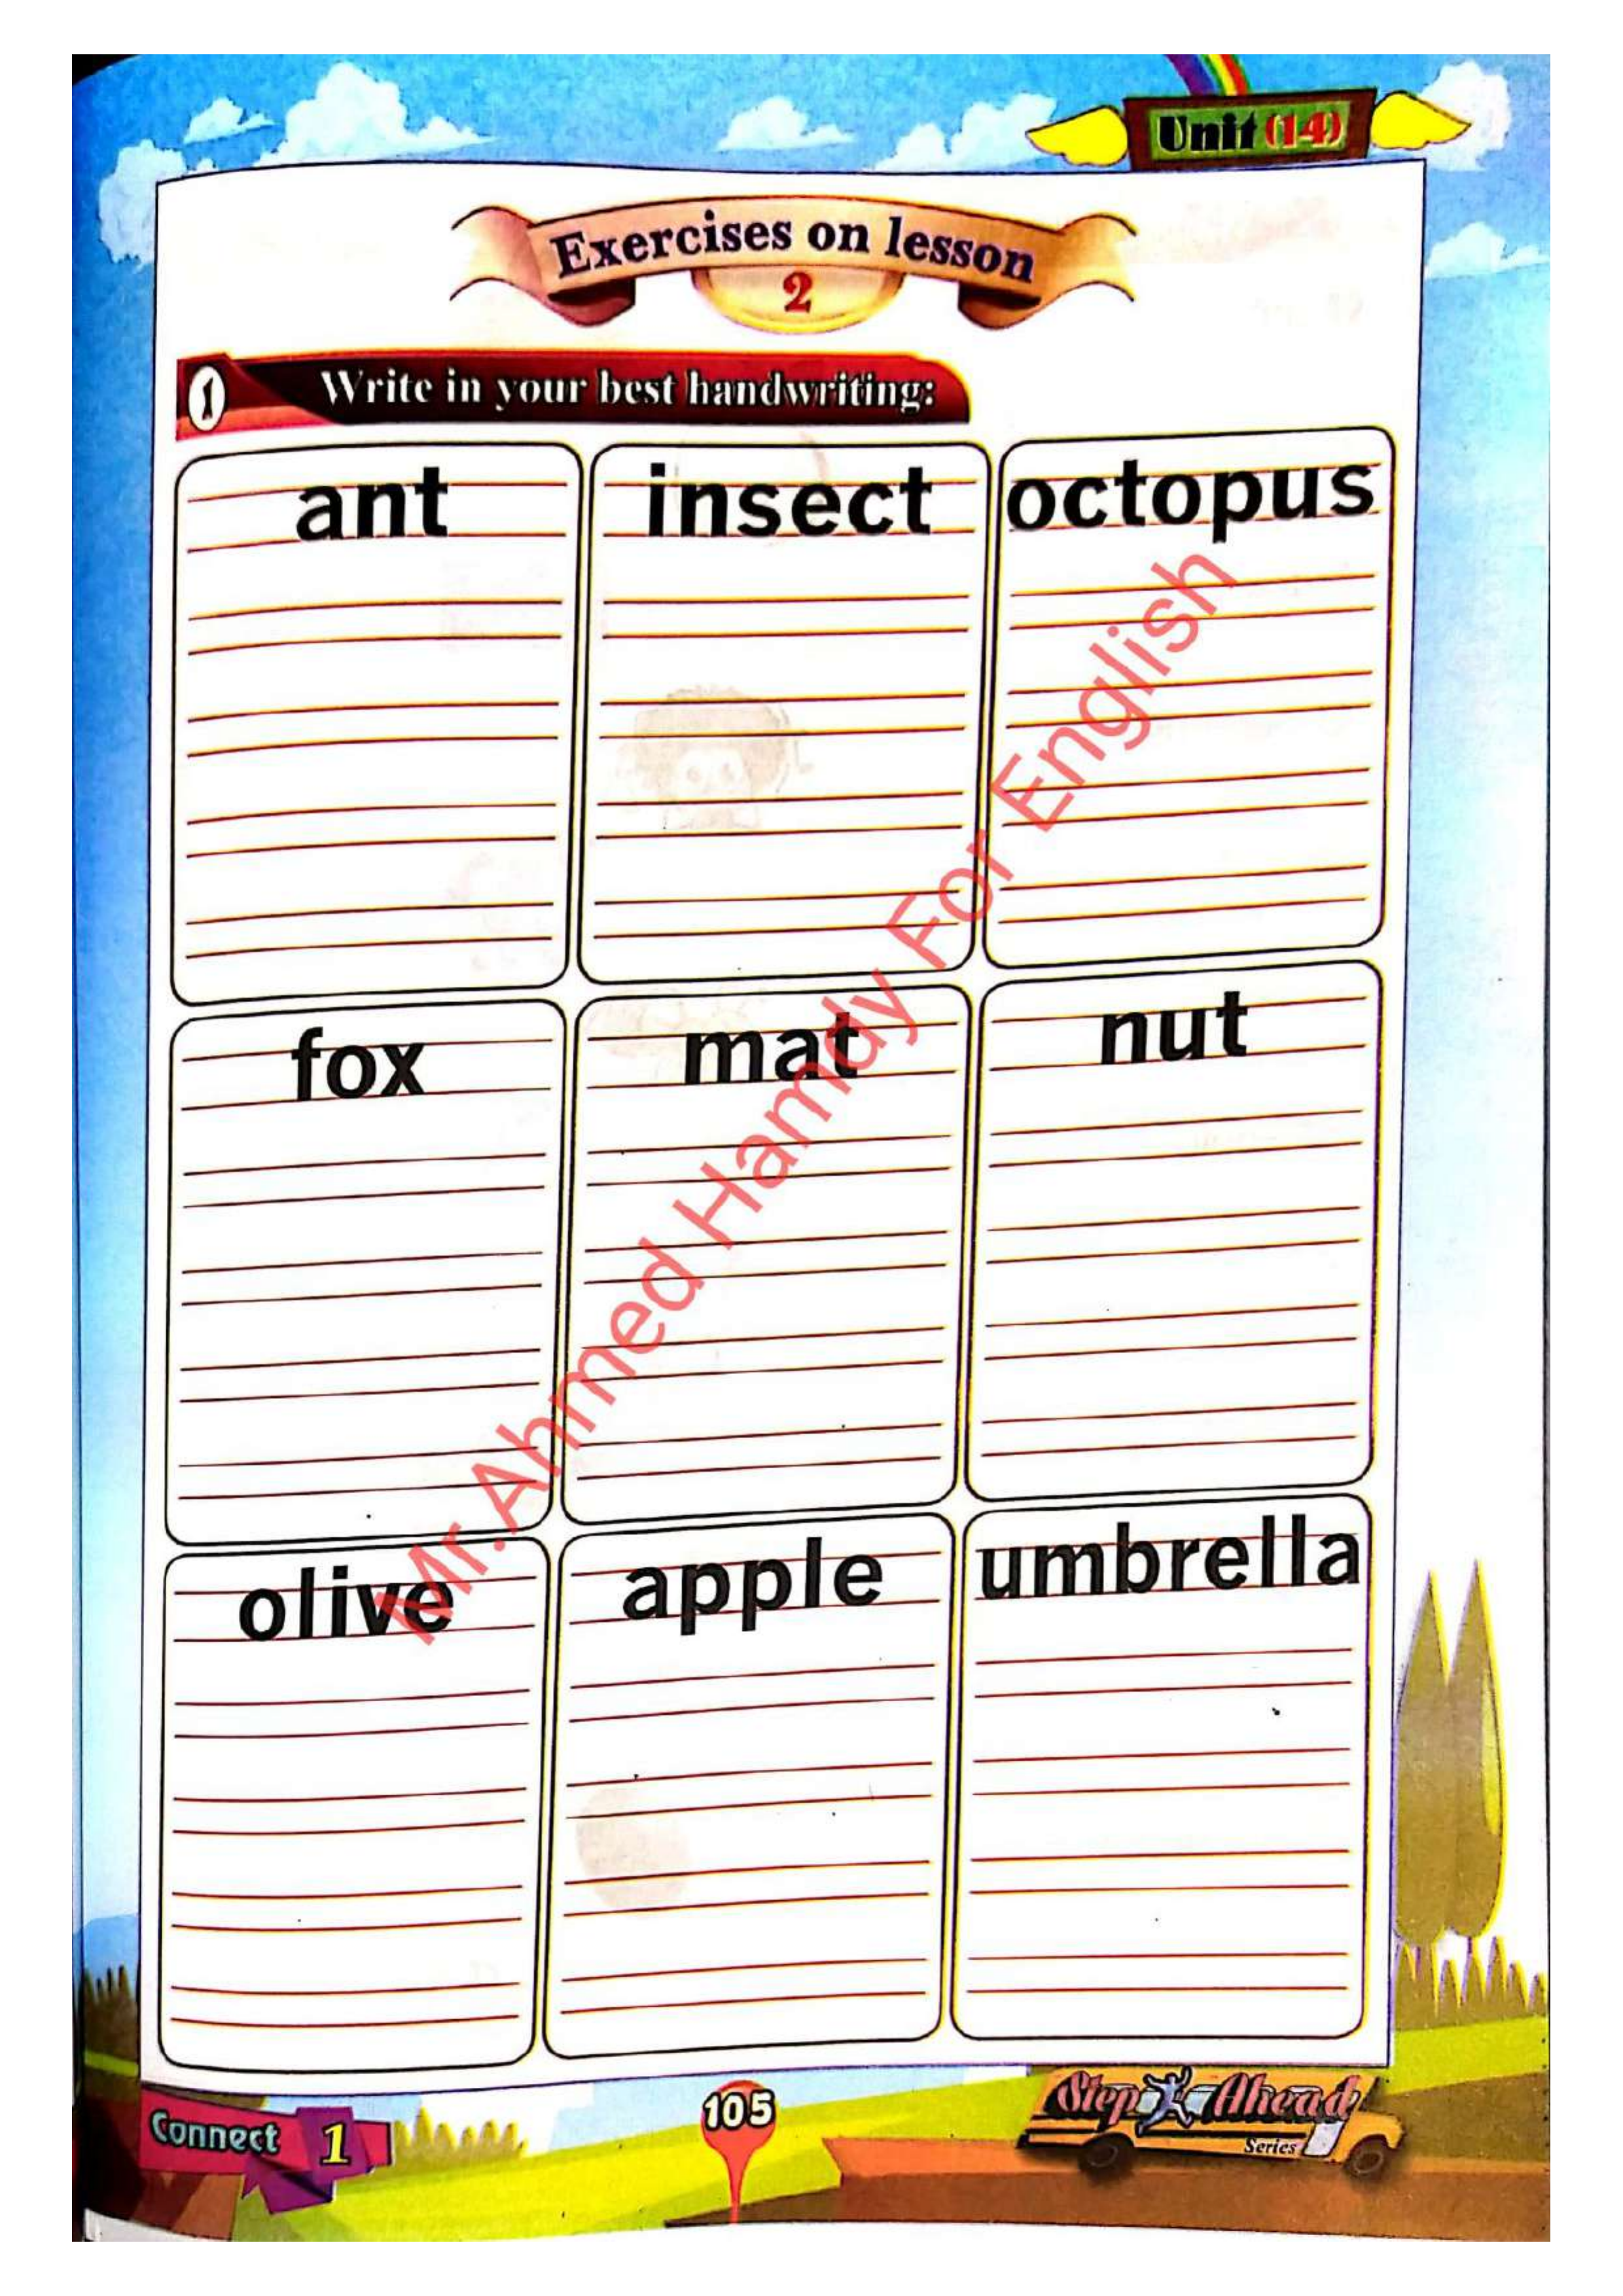 Unit (14)
Exercises on lesson
2
1 Write in your best handwriting:
ant insect octopus
fox mat nut
olive apple umbrella
Mr.Ahmed Hamdy For English
Connect 1
105
Step Ahead
Series